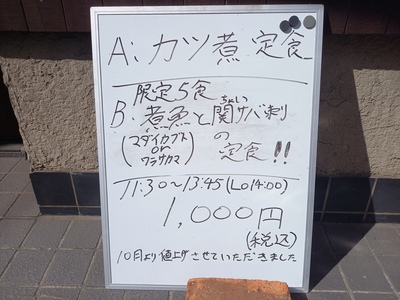 A: カツ煮 定食
限定5食
B. 煮魚とちょい関サバ刺
(マダイカブト
or
ワラサカマ)
の
定食!!
11:30~13:45(Lo14:00)
1,000円
(税込)
10月より値上げさせていただきました